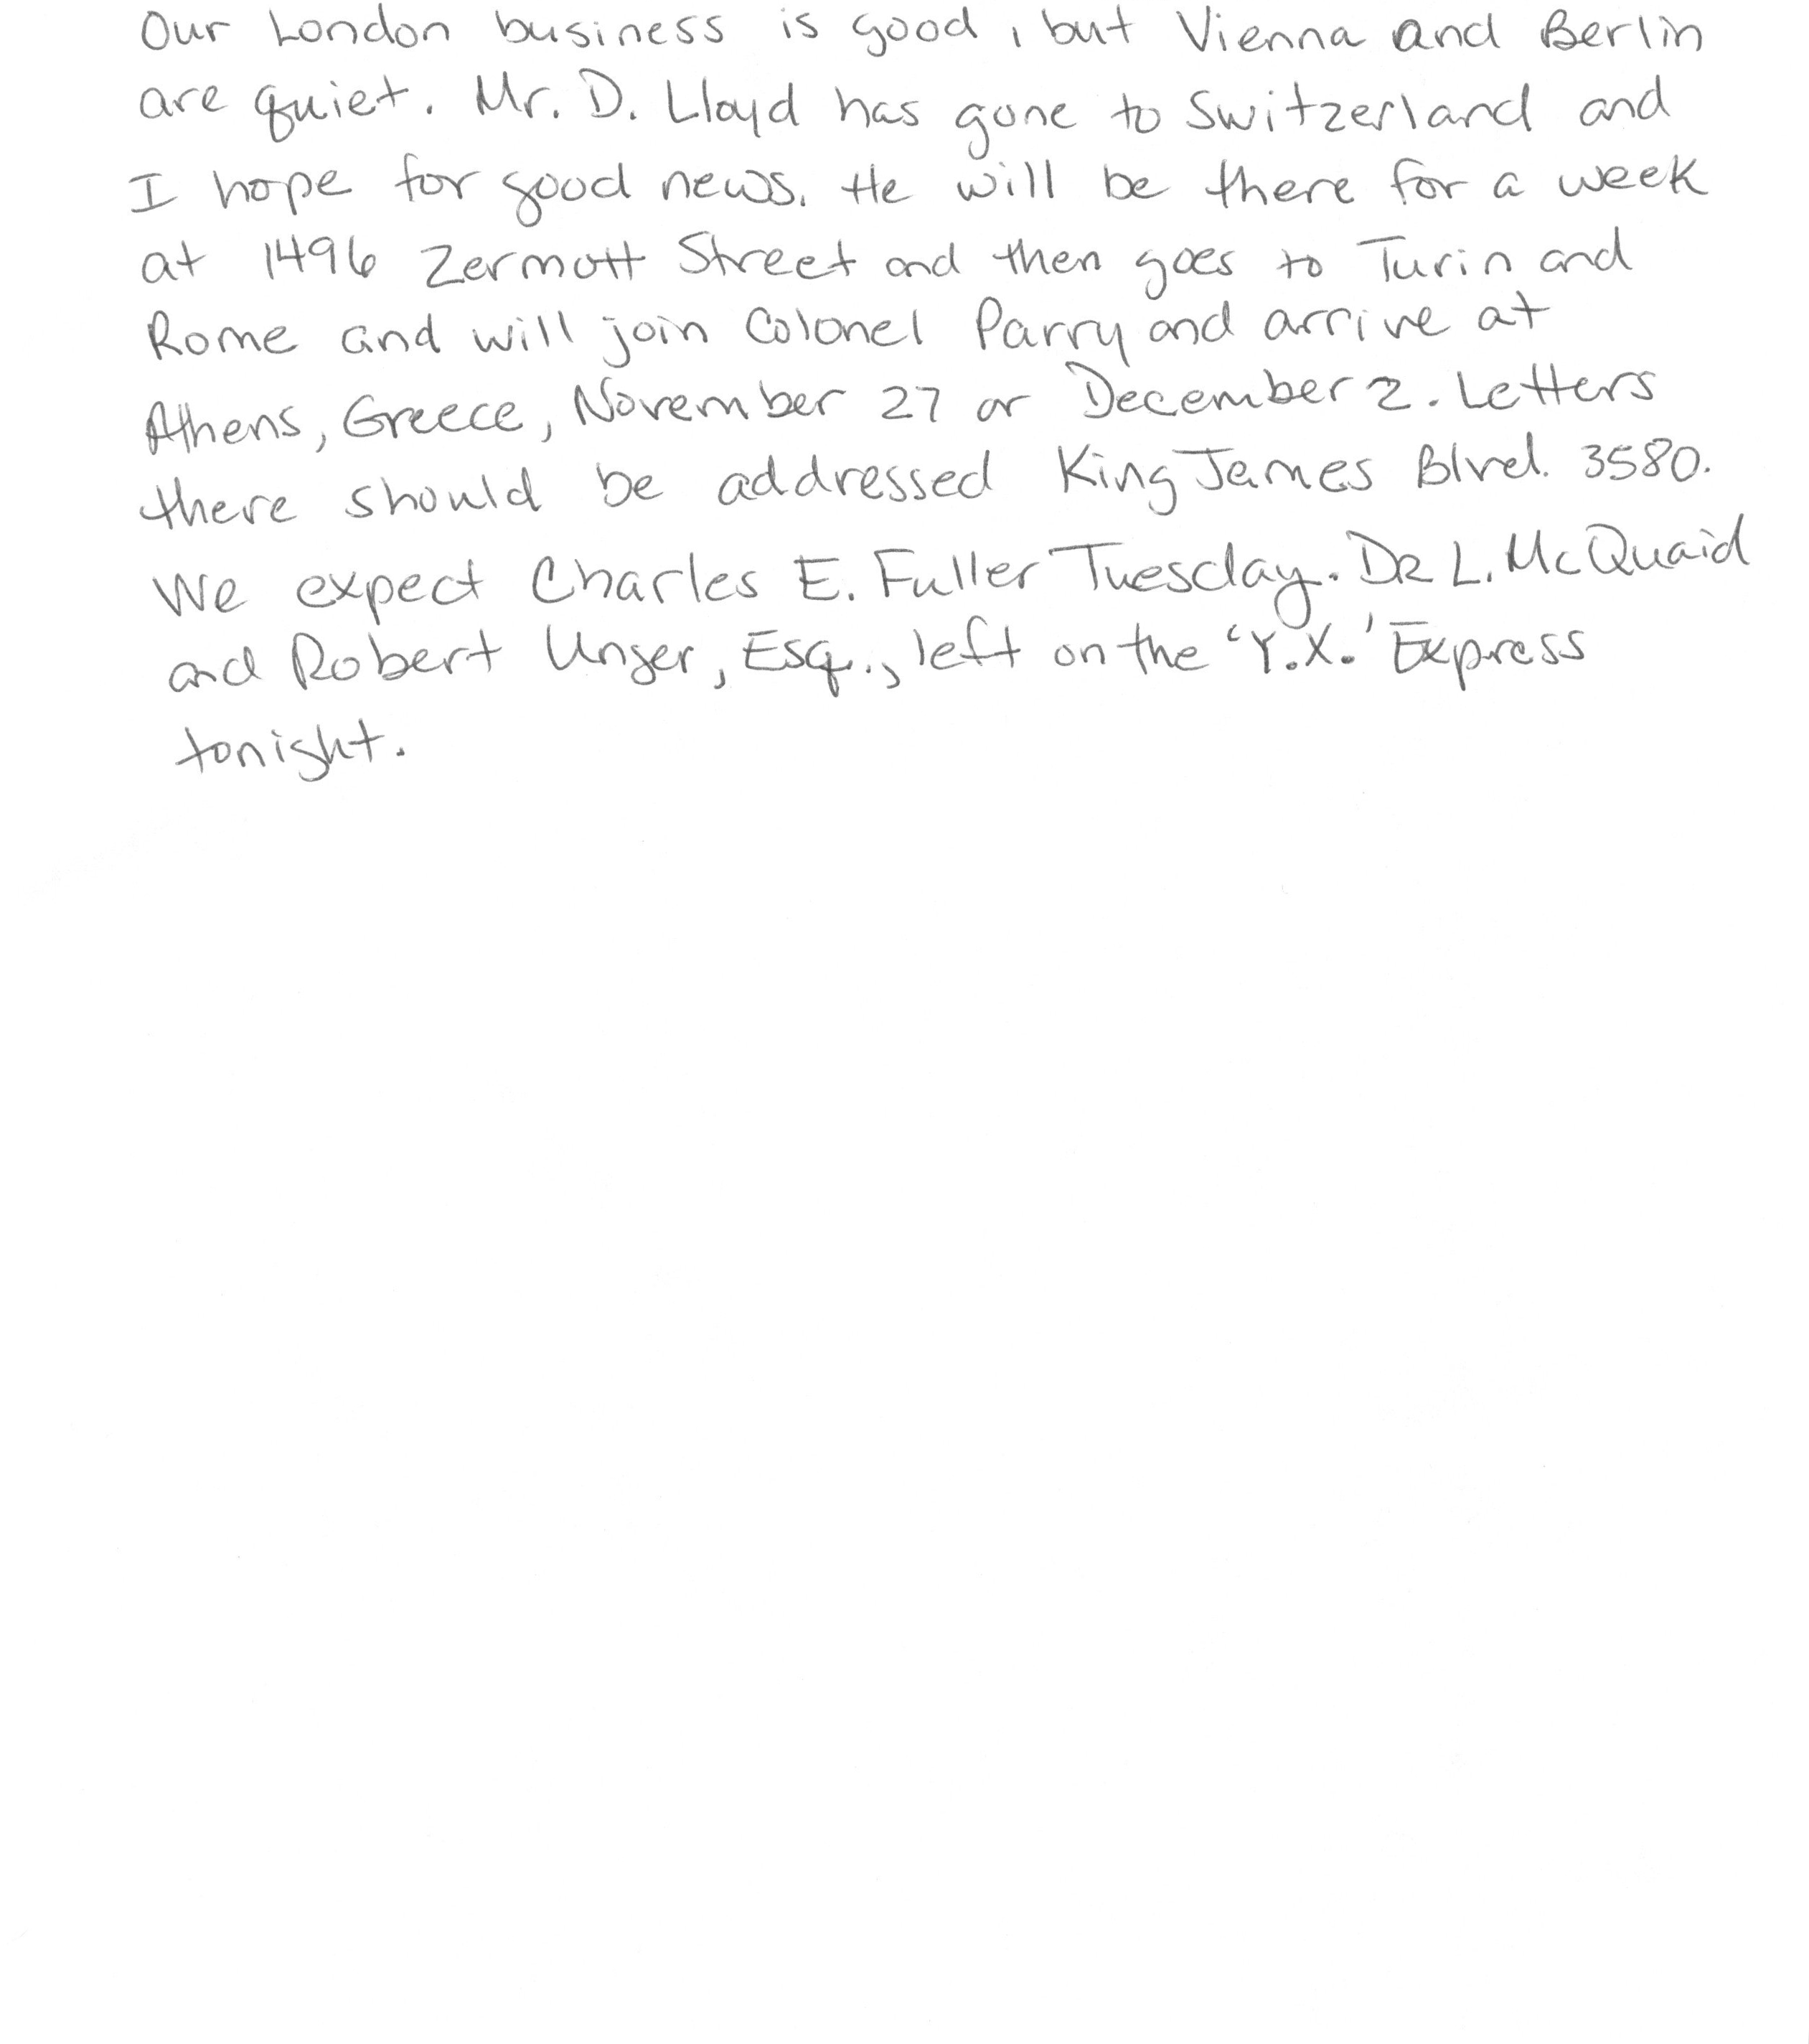 Our London business is good, but Vienna and Berlin
are quiet. Mr. D. Lloyd has gone to Switzerland and
I hope for good news. He will be there for a week
at 1496 Zermott Street and then goes to Turin and
Rome and will join Colonel Parry and arrive at
Athens, Greece, November 27 or December 2. Letters
there should be addressed King James Blvd. 3580.
We expect Charles E. Fuller Tuesday. DR L. McQuaid
and Robert Unger, Esq., left on the 'Y.X.' Express
tonight.